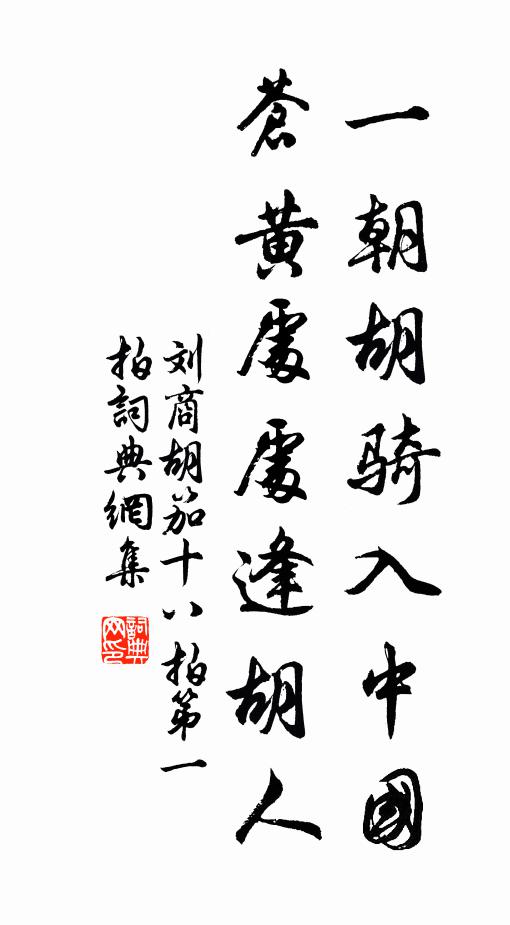 一朝胡骑入中國
蒼黄處處逢胡人
刘商胡笳十八拍第一
拍詞典網集
詞典网印